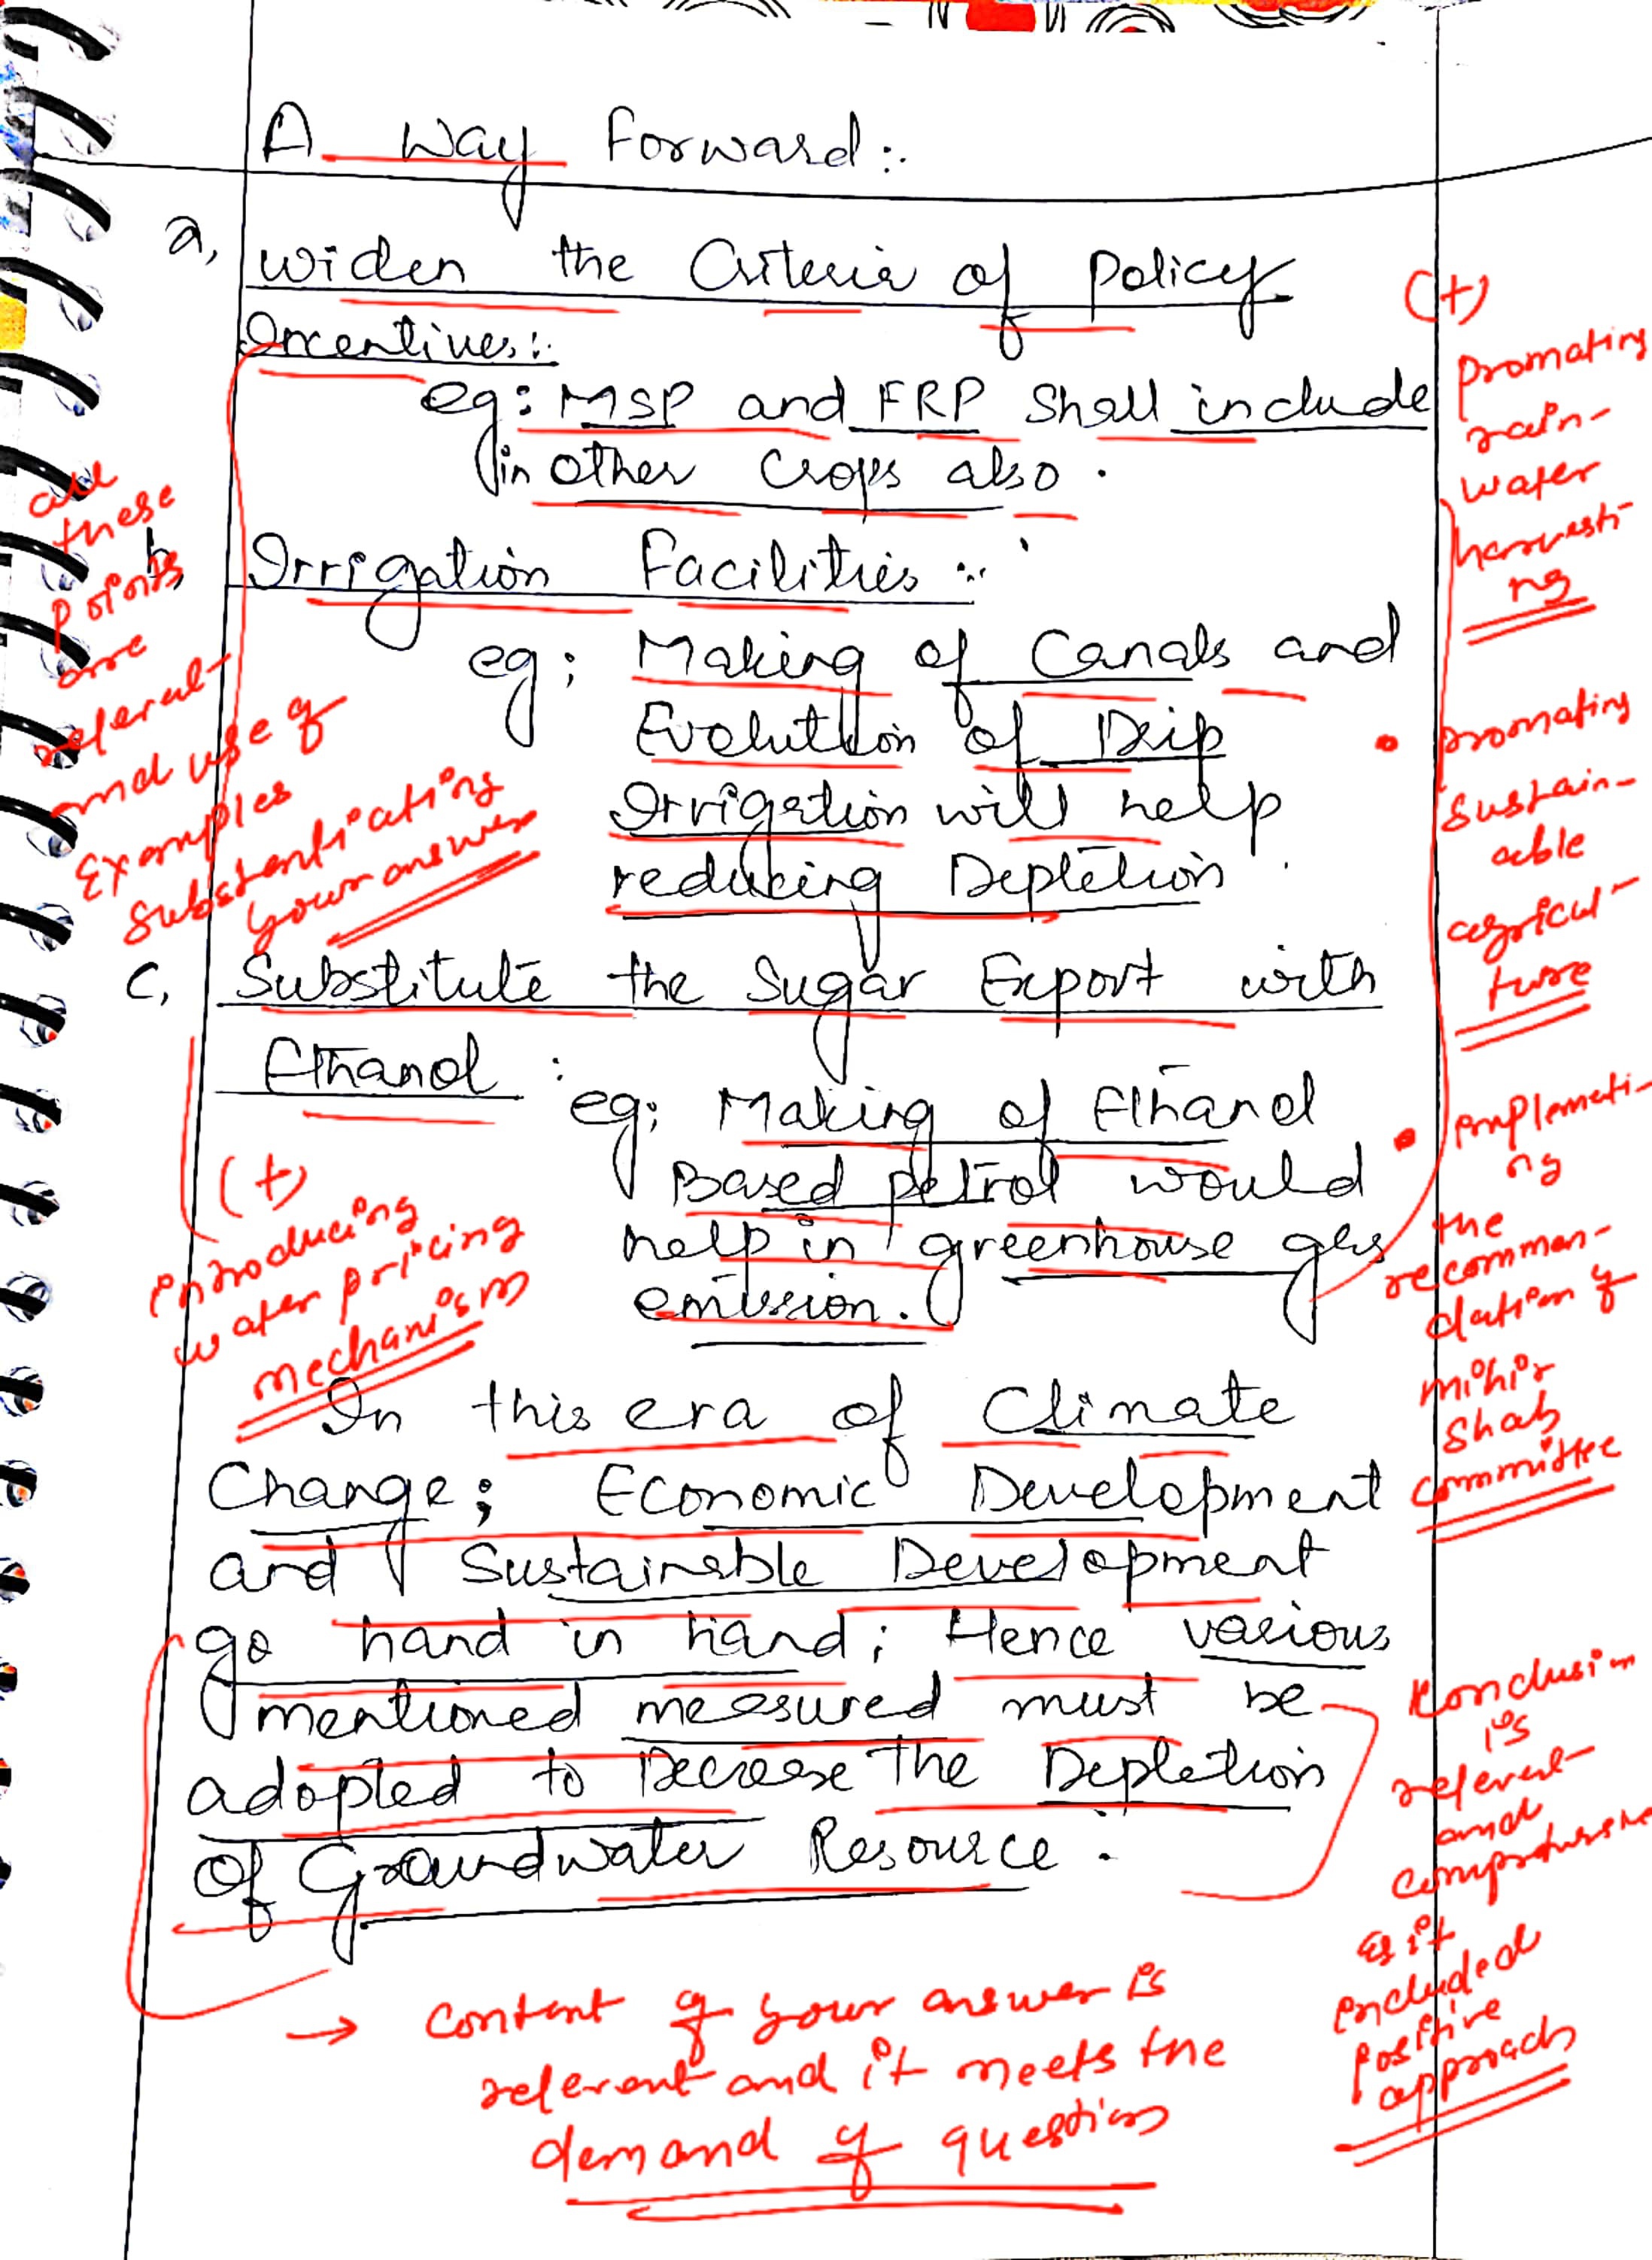 A Way Forward :.
a, widen the Criteria of policy
Incentives :.
eg: MSP and FRP Shall include
in other Crops also .
b, Irrigation Facilities :.
eg; Making of Canals and
Evolution of Drip
Irrigation will help
reducing Depletion .
C, Substitute the Sugar Export with
Ethanol :
eg; Making of Ethanol
Based petrol would
help in greenhouse gas
emission .
In this era of Climate
Change; Economic Development
and Sustainable Development
go hand in hand; Hence various
mentioned measured must be
adopted to Decrease the Depletion
of Groundwater Resource .
all
these
points
are
relevant
and use of
Examples
substantiating
your answer
(+)
introducing
water pricing
mechanism
(+)
promoting
rain-
water
harvesti-
ng
• promoting
sustain-
able
agricul-
ture
• implementi-
ng
the
recommen-
dation of
mihir
Shah
committee
Conclusion
is
relevant
and
comprehensive
as it
included
positive
approach
→ content of your answer is
relevant and it meets the
demand of question